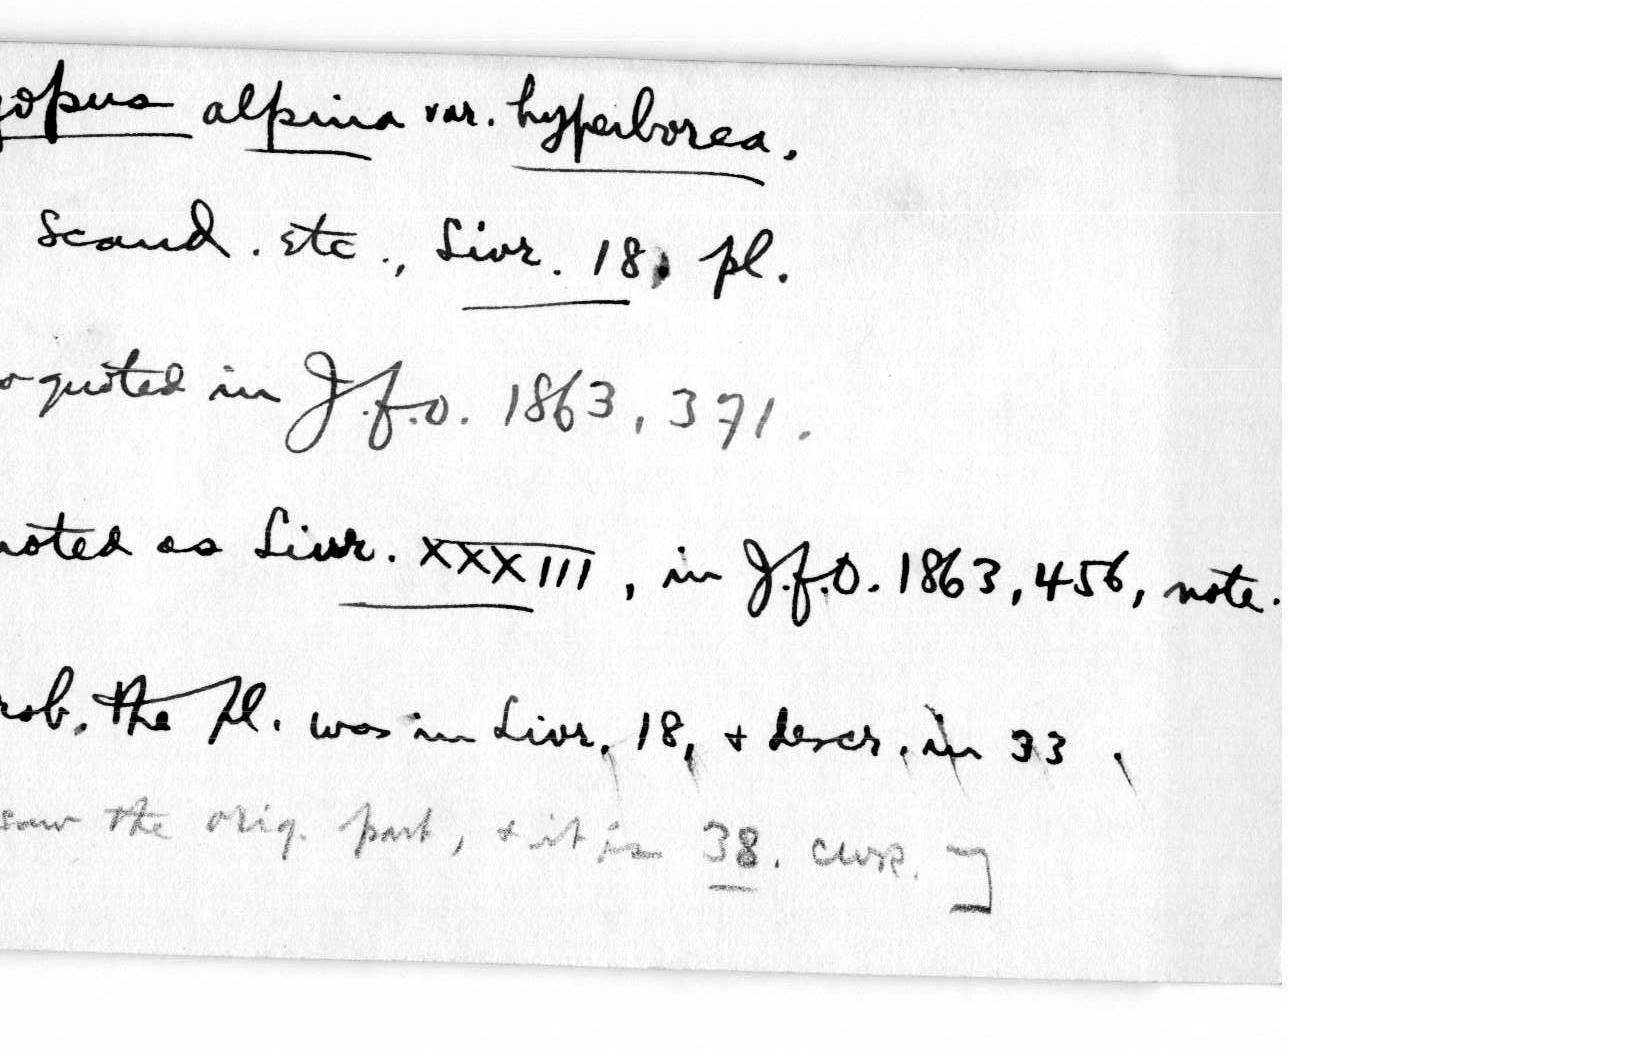 gopus alpina var. hyperborea.
Scand. etc., Livr. 18, pl.
o quoted in J.f.O. 1863, 371.
uoted as Livr. XXXIII, in J.f.O. 1863, 456, note.
rob. the pl. was in Livr. 18, + descr. in 33.
saw the orig. part, + it is 38. CWR.]